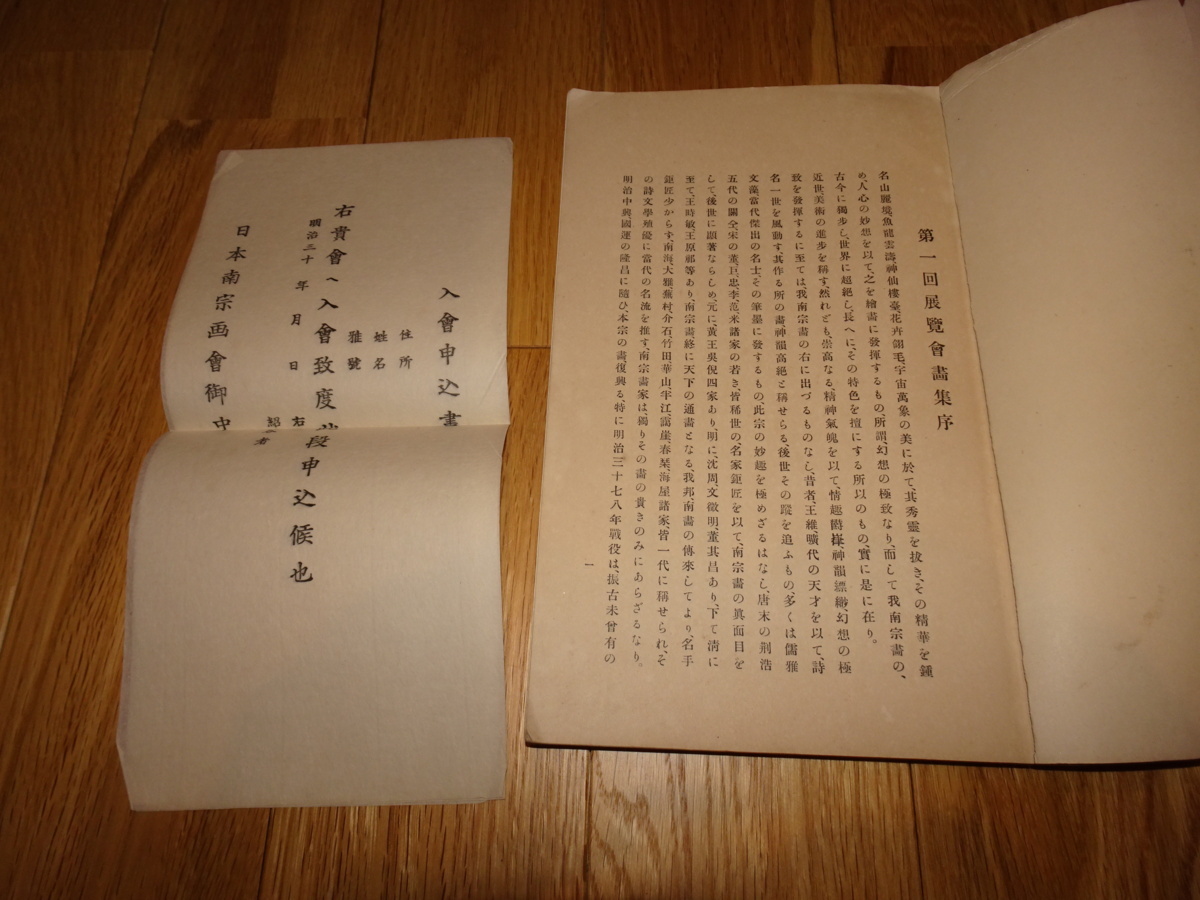 第一回展覽會畫集序
名山麗境、魚龍雲濤、神仙樓臺、花卉翎毛、宇宙萬象の美に於て、其秀靈を拔き、その精華を鍾
め、人心の妙想を以て、之を繪畫に發揮するもの、所謂、幻想の極致なり、而して我南宗畫の、
古今に獨步し、世界に超絕し、長へに、その特色を擅にする所以のもの、實に是に在り。
近世、美術の進步を稱す、然れども、崇高なる、精神氣魄を以て、情趣神韻縹緲、幻想の極
致を發揮するに至ては、我南宗畫の右に出づるものなし、昔者、王維、曠代の天才を以て、詩
名一世を風動す、其作る所の畫、神韻高絕と稱せらる、後世その蹤を追ふもの、多くは儒雅
文藻、當代傑出の名士、その筆墨に發するもの、此宗の妙趣を極めざるはなし、唐末の荆浩
五代の關仝、宋の董、巨、忠、李、范、米諸家の若き、皆稀世の名家鉅匠を以て、南宗畫の眞面目を
して、後世に顯著ならしめ、元に、黃王吳倪四家あり、明に、沈周、文徵明、董其昌あり、下て淸に
至て、王時敏、王原祁等あり、南宗畫終に天下の通畫となる、我邦、南畫の傳來してより、名手
鉅匠少からず、南海、大雅、蕪村、介石、竹田、華山、半江、靄崖、春琹、海屋諸家、皆一代に稱せられ、そ
の詩文學殖優に當代の名流を推す、南宗畫家は、獨りその畫の貴きのみにあらざるなり。
明治中興國運の隆昌に隨ひ、本宗の畫、復興る、特に明治三十七八年戰役は、振古未曾有の
一
入會申込書
住所
姓名
雅號
右貴會へ入會致度 段申込候也
明治三十 年 月 日
右
紹 者
日本南宗画會御中